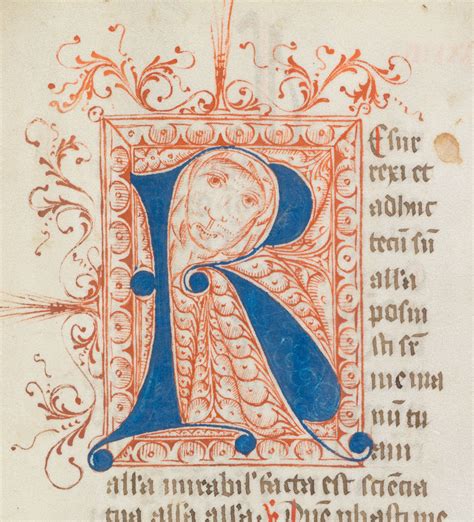 REsur
rexi et
adhuc
tecū sū
all'a
posui
sti sr̄
me ma
nū tu
am
all'a mirabil' facta est sciēcia
tua all'a all'a